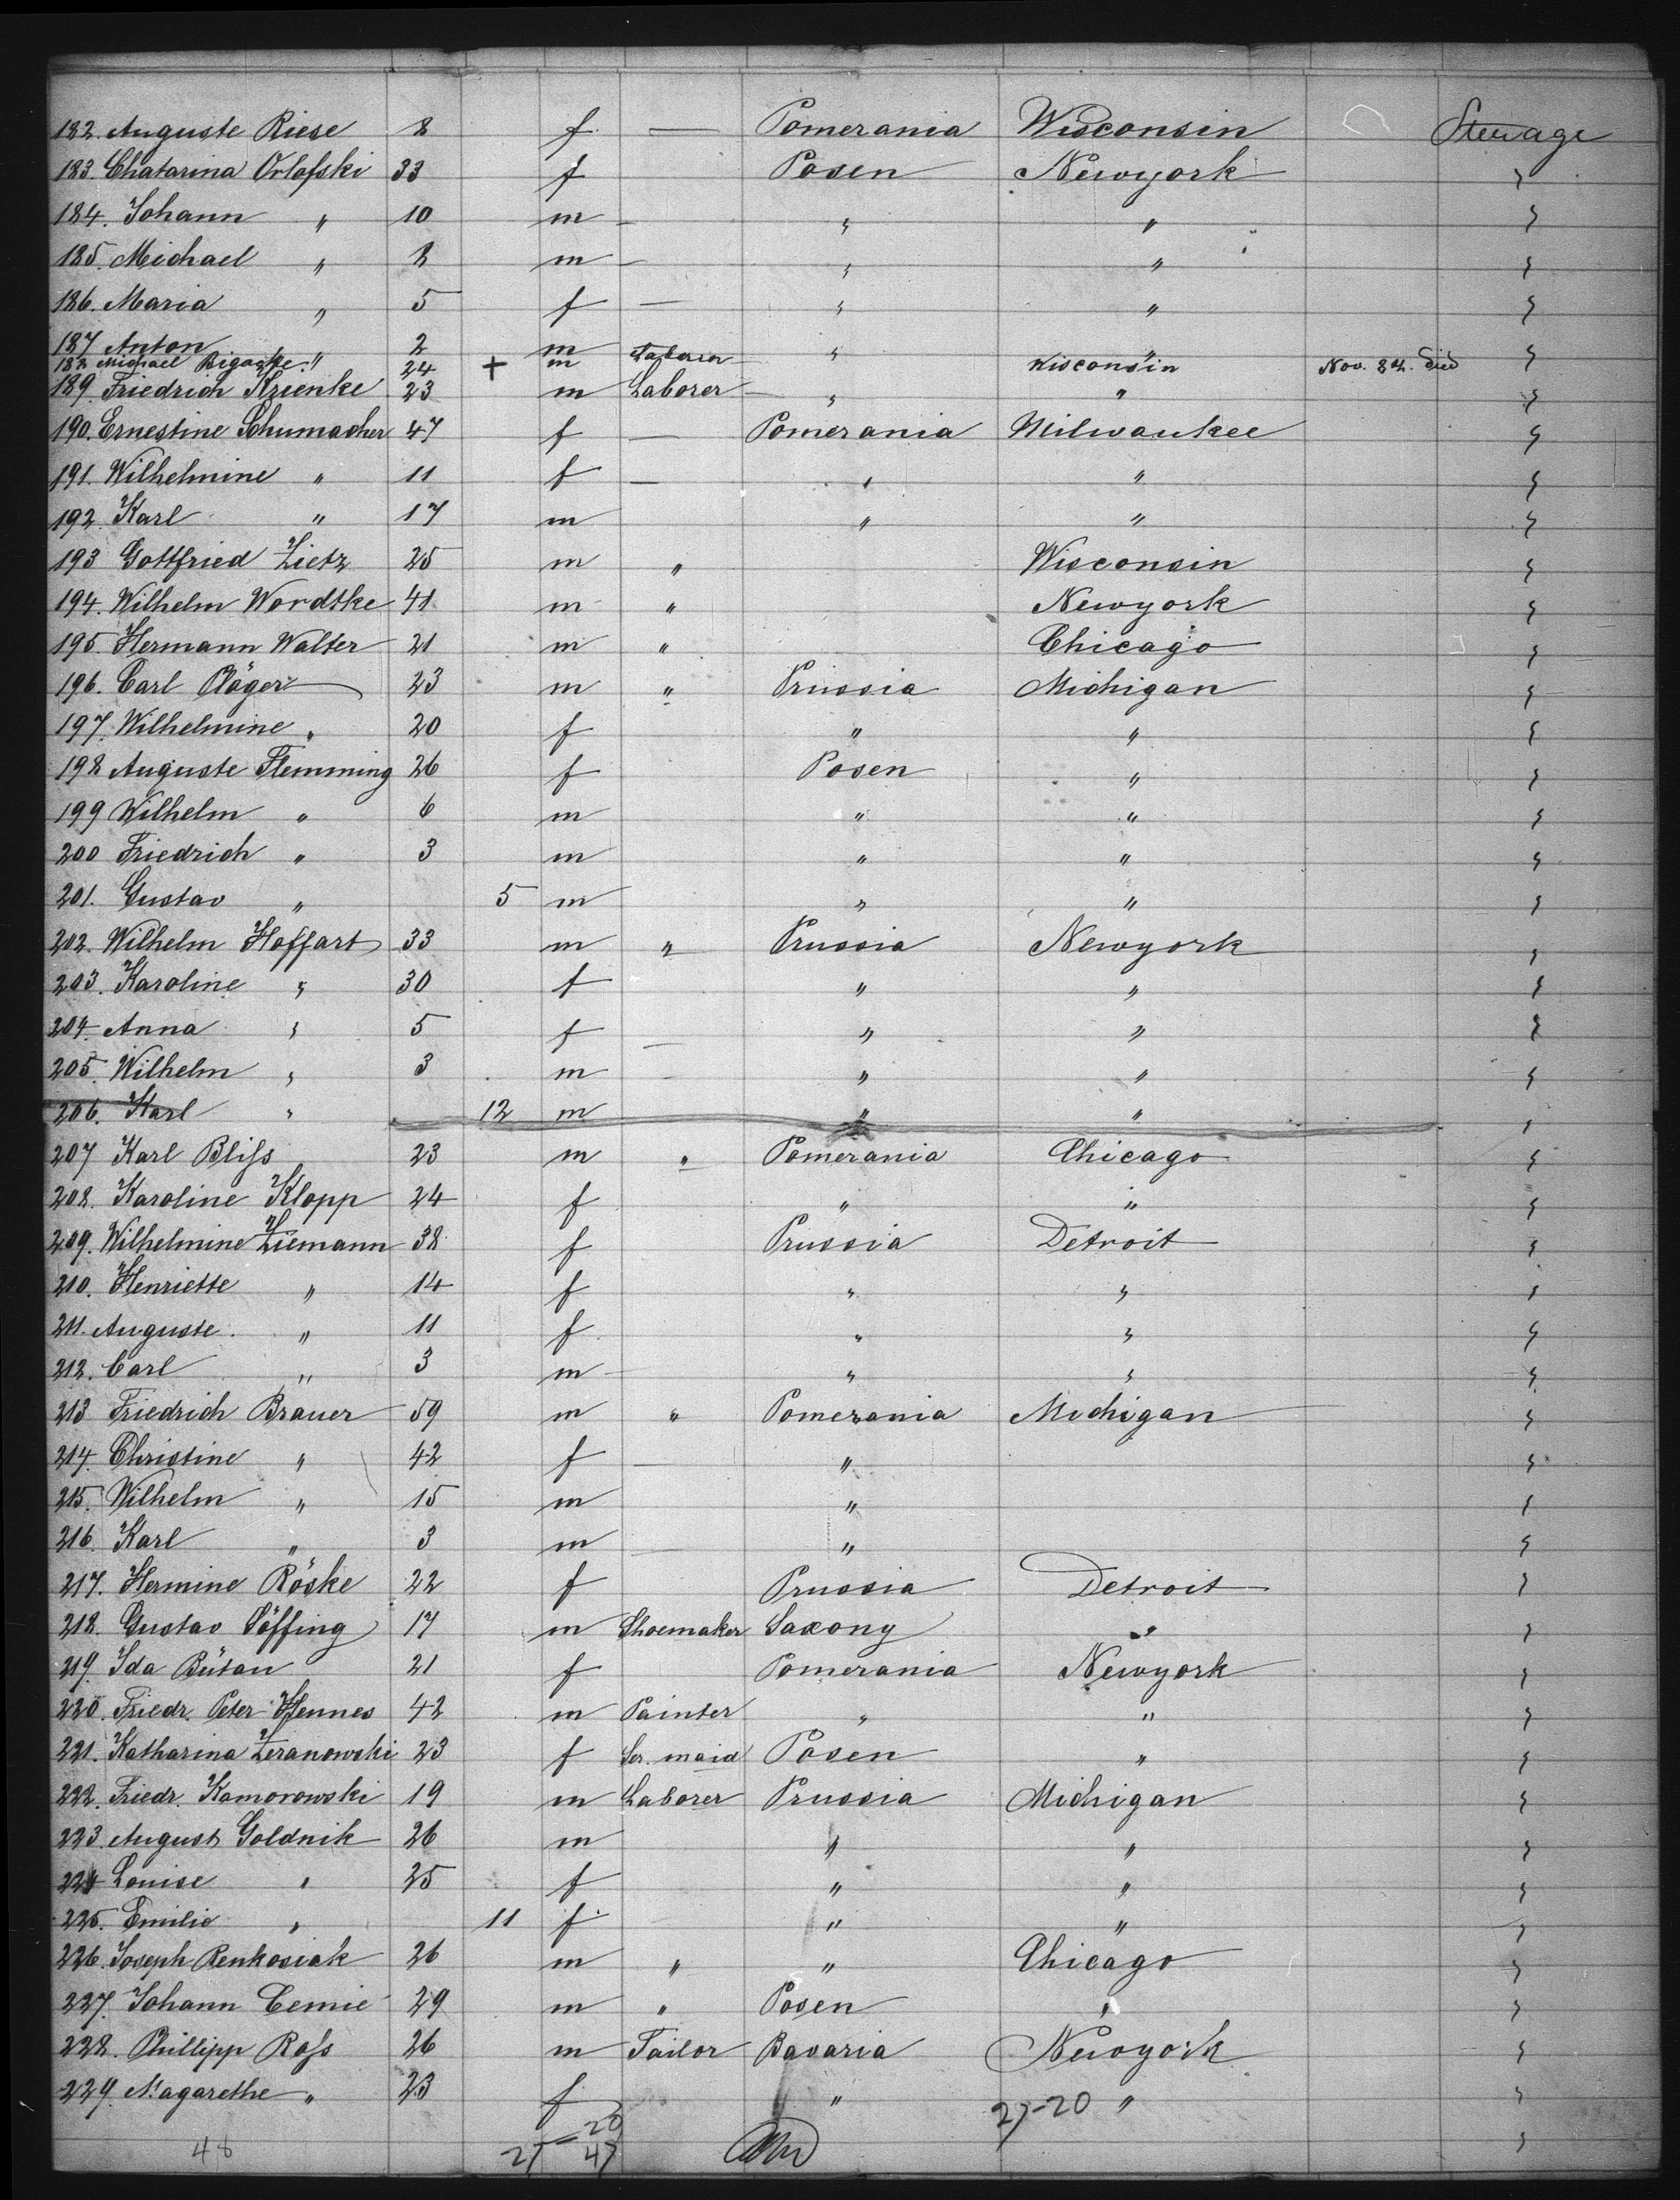 182. Auguste Riese 8 f. — Pomerania Wisconsin Steerage
183. Chatarina Orlofski 33 f Posen Newyork "
184. Johann " 10 m — " " "
185. Michael " 8 m — " " "
186. Maria " 5 f — " " "
187 Anton " 2 m " " "
188 Michael 24 + m Laborer Wisconsin Nov. 8th. died
189. Friedrich Krienke 23 m Laborer " " "
190. Ernestine Schumacher 47 f — Pomerania Milwaukee "
191. Wilhelmine " 11 f — " " "
192. Karl " 17 m " " "
193 Gottfried Zietz 25 m " Wisconsin "
194. Wilhelm Wordtke 41 m " Newyork "
195. Hermann Walter 21 m " Chicago "
196. Carl Plöger 23 m " Prussia Michigan "
197. Wilhelmine " 20 f " " "
198 Auguste Flemming 26 f Posen " "
199 Wilhelm " 6 m " " "
200 Friedrich " 3 m " " "
201. Gustav " 5 m " " "
202. Wilhelm Hoffart 33 m " Prussia Newyork "
203. Karoline " 30 f " " "
204. Anna " 5 f — " " "
205. Wilhelm " 3 m " " "
206. Karl " 12 m " " "
207 Karl Bliss 23 m " Pomerania Chicago "
208. Karoline Klopp 24 f " " "
209. Wilhelmine Ziemann 38 f Prussia Detroit "
210. Henriette " 14 f " " "
211. Auguste. " 11 f " " "
212. Carl " 3 m " " "
213 Friedrich Brauer 59 m " Pomerania Michigan "
214. Christine " 42 f — " "
215. Wilhelm " 15 m " "
216. Karl " 3 m " "
217. Hermine Röske 22 f Prussia Detroit "
218. Gustav Söffing 17 m Shoemaker Saxony " "
219. Ida Bütan 21 f Pomerania Newyork "
220. Friedr. Peter Hennes 42 m Painter " " "
221. Katharina Zeranowski 23 f Ser. maid Posen " "
222. Friedr. Komorowski 19 m Laborer Prussia Michigan "
223. August Goldnik 26 m " " "
224 Louise " 25 f " " "
225. Emilie " 11 f " " "
226. Joseph Renkosiak 26 m " " Chicago "
227. Johann Cemie 29 m " Posen " "
228. Phillipp Ross 26 m Tailor Bavaria Newyork "
229. Magarethe " 23 f " " "
27-20
27 = 20
48 47